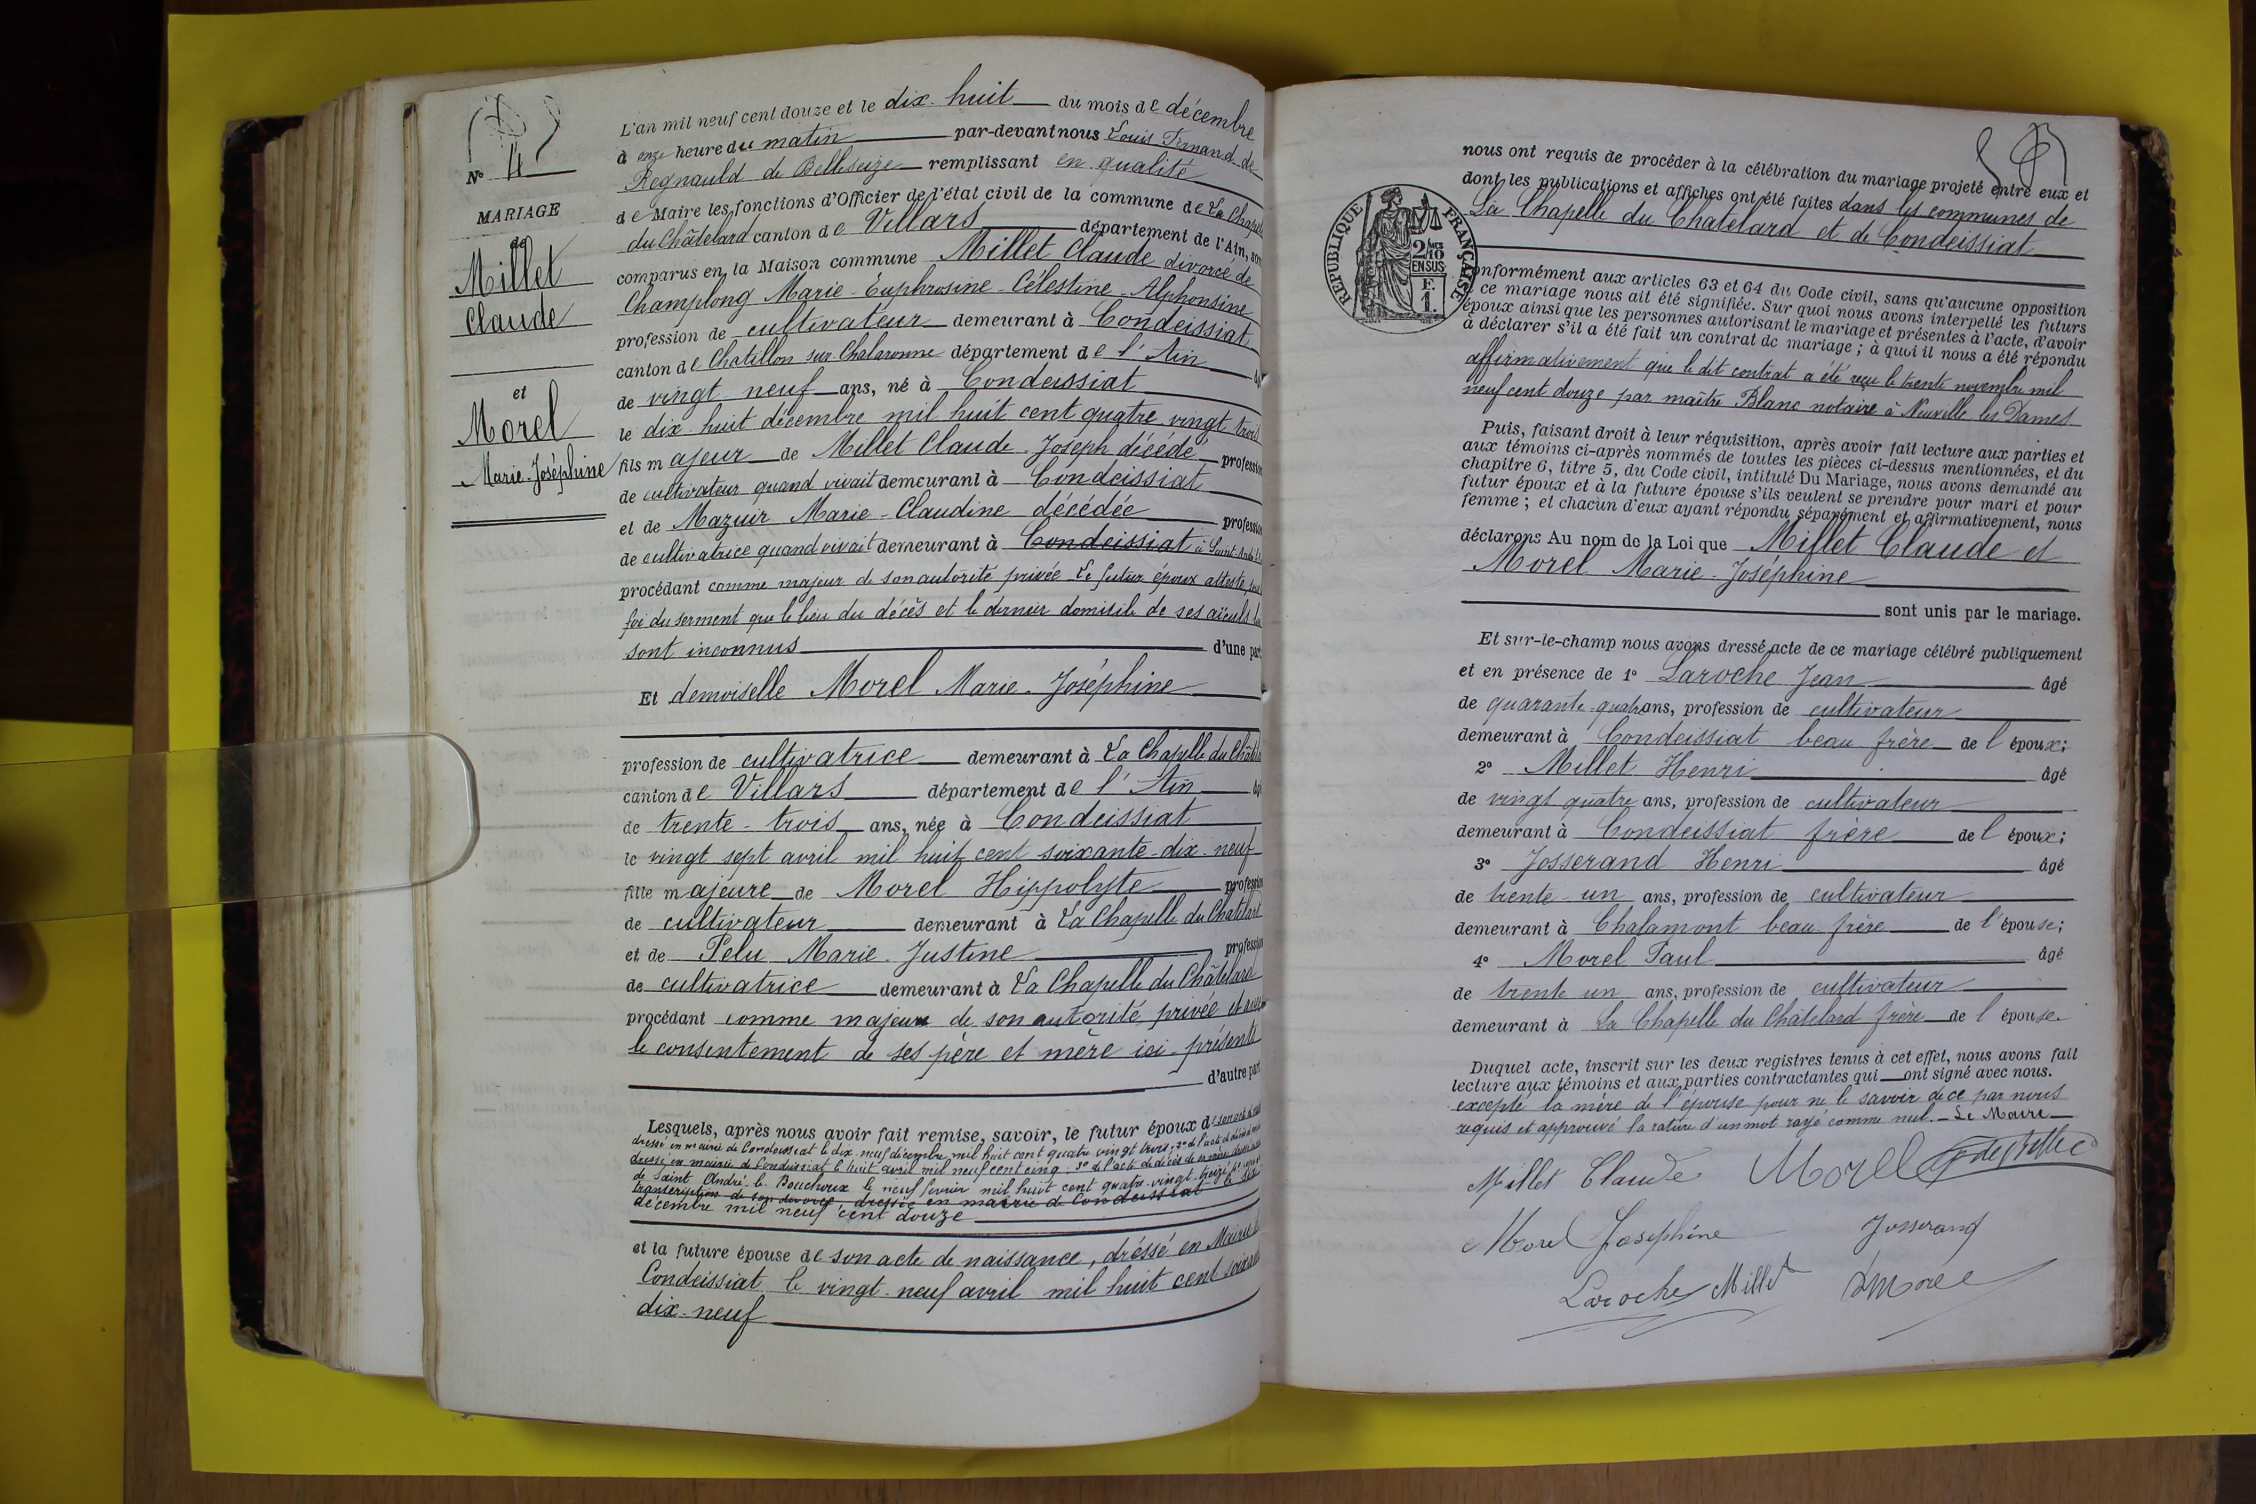 N° 4
MARIAGE
de
Millet
Claude
et
Morel
Marie-Joséphine
L'an mil neuf cent douze et le dix-huit du mois de décembre
à onze heure du matin par-devant nous Louis Fernand de
Regnauld de Bellescize remplissant en qualité
de Maire les fonctions d'Officier de l'état civil de la commune de La Chapelle
du Châtelard canton de Villars département de l'Ain, sont
comparus en la Maison commune Millet Claude divorcé de
Champlong Marie-Euphrosine-Célestine-Alphonsine
profession de cultivateur demeurant à Condeissiat
canton de Chatillon sur Chalaronne département de l'Ain
de vingt neuf ans, né à Condeissiat
le dix-huit décembre mil huit cent quatre vingt trois
fils majeur de Millet Claude-Joseph décédé profession
de cultivateur quand vivait demeurant à Condeissiat
et de Mazuir Marie-Claudine décédée profession
de cultivatrice quand vivait demeurant à Condeissiat à Saint-André
procédant comme majeur de son autorité privée Le futur époux atteste sous
foi du serment que le lieu du décès et le dernier domicile de ses aïeuls lui
sont inconnus d'une part
Et demoiselle Morel Marie-Joséphine
profession de cultivatrice demeurant à La Chapelle du Châtelard
canton de Villars département de l'Ain
de trente-trois ans, née à Condeissiat
le vingt sept avril mil huit cent soixante-dix-neuf
fille majeure de Morel Hippolyte profession
de cultivateur demeurant à La Chapelle du Chatelard
et de Pelu Marie-Justine profession
de cultivatrice demeurant à La Chapelle du Châtelard
procédant comme majeure de son autorité privée et avec
le consentement de ses père et mère ici présents
d'autre part
Lesquels, après nous avoir fait remise, savoir, le futur époux de son acte de
dressé en mairie de Condeissiat le dix-neuf décembre mil huit cent quatre vingt trois; 2° de l'acte de décès de
dressé en mairie de Condeissiat le huit avril mil neuf cent cinq 3° de l'acte de décès de sa mère
de Saint André-le-Bouchoux le neuf février mil huit cent quatre-vingt-treize
transcription de son divorce, dressée en mairie de Condeissiat le
décembre mil neuf cent douze
et la future épouse de son acte de naissance, dréssé en Mairie de
Condeissiat le vingt-neuf avril mil huit cent soixante
dix-neuf
nous ont requis de procéder à la célébration du mariage projeté entre eux et
dont les publications et affiches ont été faites dans les communes de
La Chapelle du Chatelard et de Condeissiat
RÉPUBLIQUE FRANÇAISE
2/10
EN SUS
F.
1.
conformément aux articles 63 et 64 du Code civil, sans qu'aucune opposition
à ce mariage nous ait été signifiée. Sur quoi nous avons interpellé les futurs
époux ainsi que les personnes autorisant le mariage et présentes à l'acte, d'avoir
à déclarer s'il a été fait un contrat de mariage; à quoi il nous a été répondu
affirmativement que le dit contrat a été reçu le trente novembre mil
neuf cent douze par maître Blanc notaire à Neuville les Dames
Puis, faisant droit à leur réquisition, après avoir fait lecture aux parties et
aux témoins ci-après nommés de toutes les pièces ci-dessus mentionnées, et du
chapitre 6, titre 5, du Code civil, intitulé Du Mariage, nous avons demandé au
futur époux et à la future épouse s'ils veulent se prendre pour mari et pour
femme; et chacun d'eux ayant répondu séparément et affirmativement, nous
déclarons Au nom de la Loi que Millet Claude et
Morel Marie-Joséphine
sont unis par le mariage.
Et sur-le-champ nous avons dressé acte de ce mariage célébré publiquement
et en présence de 1° Laroche Jean âgé
de quarante-quatre ans, profession de cultivateur
demeurant à Condeissiat beau frère de l'époux;
2° Millet Henri âgé
de vingt quatre ans, profession de cultivateur
demeurant à Condeissiat frère de l'époux;
3° Josserand Henri âgé
de trente-un ans, profession de cultivateur
demeurant à Chalamont beau-frère de l'épouse;
4° Morel Paul âgé
de trente un ans, profession de cultivateur
demeurant à La Chapelle du Châtelard frère de l'épouse.
Duquel acte, inscrit sur les deux registres tenus à cet effet, nous avons fait
lecture aux témoins et aux parties contractantes qui ont signé avec nous.
excepté la mère de l'épouse pour ne le savoir de ce par nous
requis et approuvé la rature d'un mot rayé comme nul. Le Maire
Millet Claude Morel
Morel Joséphine Josserand
Laroche Millet Morel